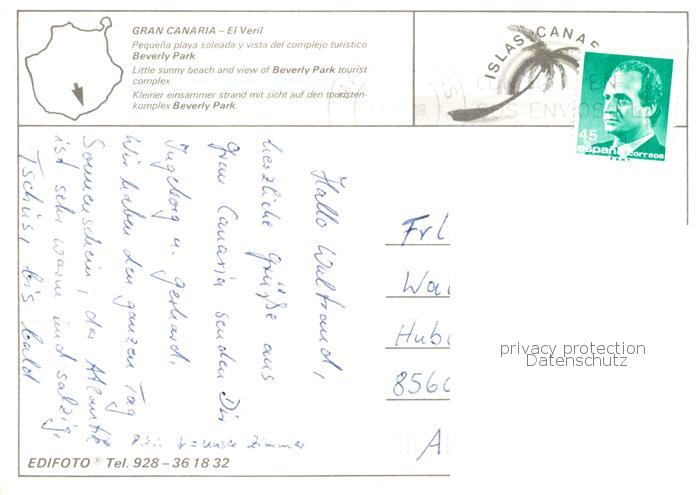 GRAN CANARIA – El Veril
Pequeña playa soleada y vista del complejo turistico
Beverly Park
Little sunny beach and view of Beverly Park tourist
complex.
Kleiner einsammer strand mit sicht auf den touristen-
komplex Beverly Park.
ISLAS CANA
EN
SUS ENVIOS
45
españa correos
Hallo Waltraud,
herzliche Grüße aus
Gran Canaria senden Dir
Ingeborg u. Gerhard.
Wir haben den ganzen Tag
Sonnenschein, der Atlantik
ist sehr warm und salzig.
Tschüs, bis bald
= unser Zimmer
Frl
Wa
Hub
856
A
privacy protection
Datenschutz
EDIFOTO® Tel. 928 – 36 18 32